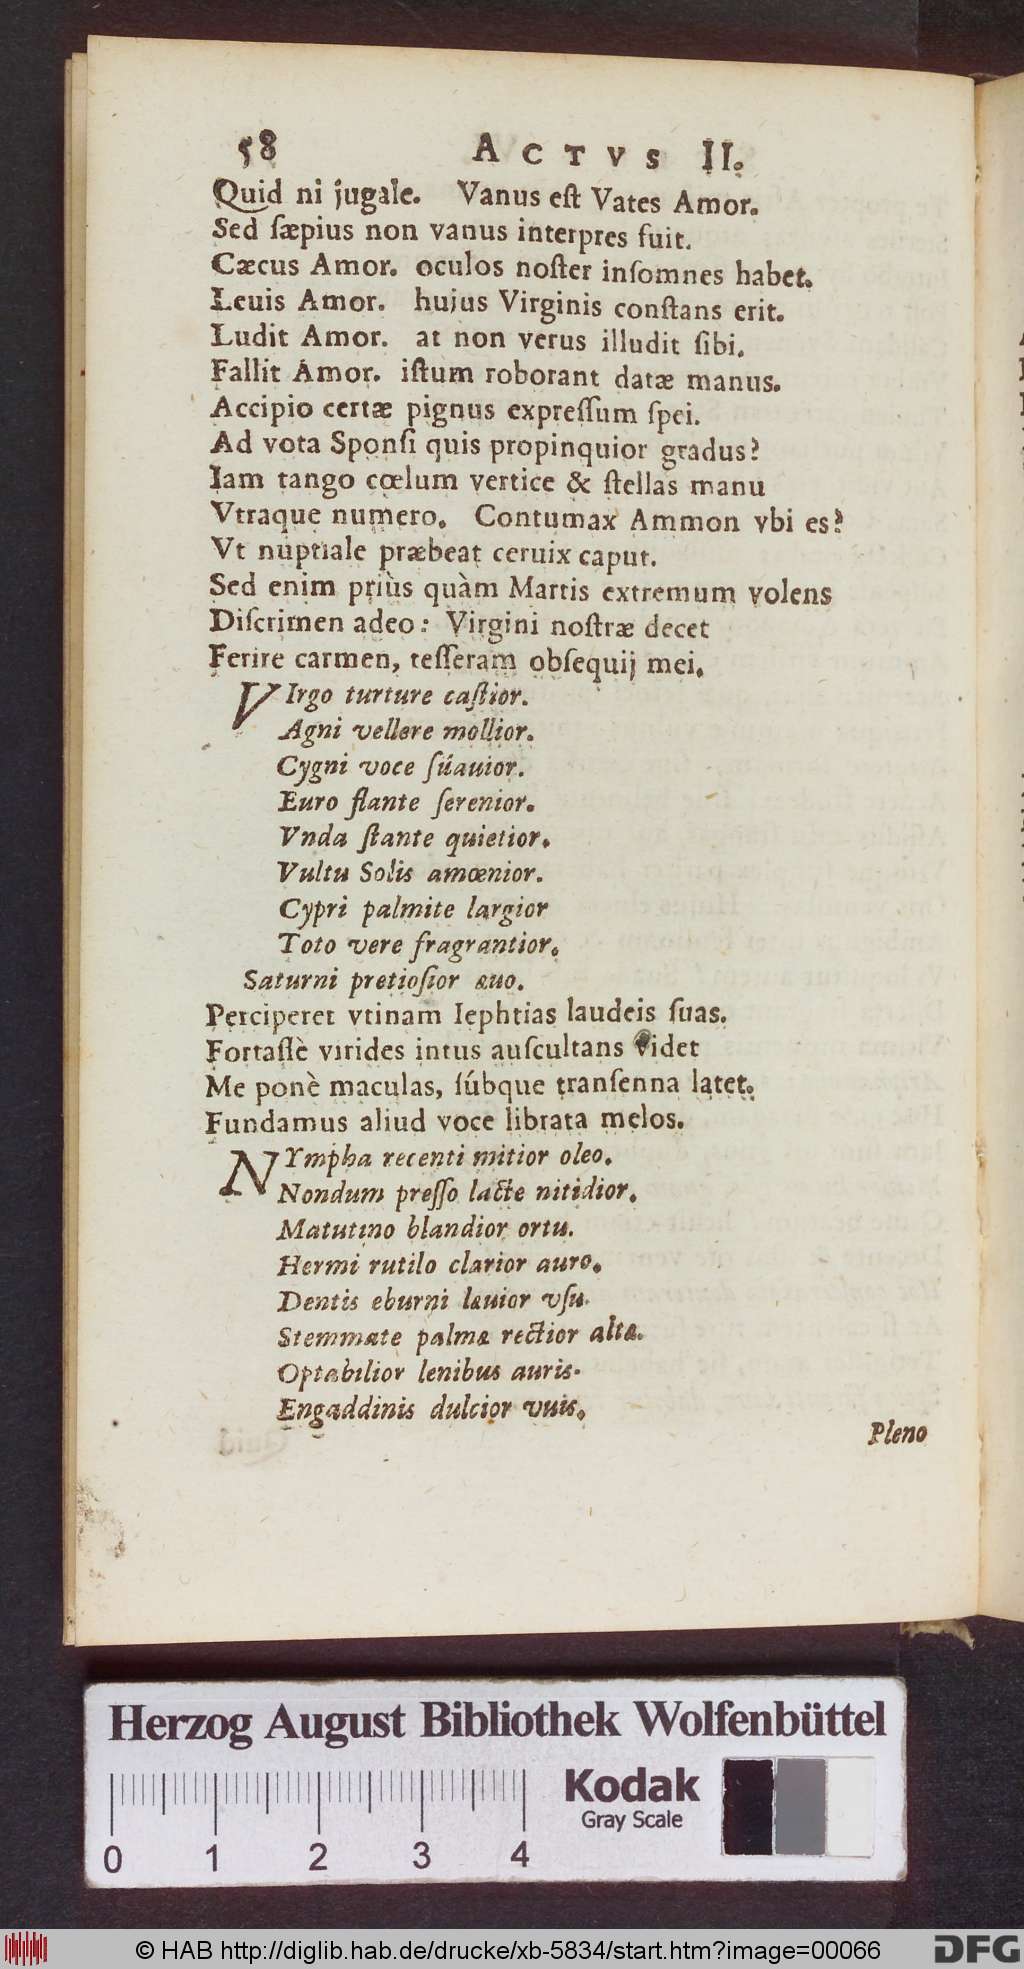 58 ACTVS II.
Quid ni jugale. Vanus eſt Vates Amor.
Sed ſæpius non vanus interpres fuit.
Cæcus Amor. oculos noſter inſomnes habet.
Leuis Amor. hujus Virginis conſtans erit.
Ludit Amor. at non verus illudit ſibi.
Fallit Amor. iſtum roborant datæ manus.
Accipio certæ pignus expreſſum ſpei.
Ad vota Sponſi quis propinquior gradus?
Iam tango cœlum vertice & ſtellas manu
Vtraque numero. Contumax Ammon vbi es?
Vt nuptiale præbeat ceruix caput.
Sed enim priùs quàm Martis extremum volens
Diſcrimen adeo: Virgini noſtræ decet
Ferire carmen, teſſeram obſequij mei.
VIrgo turture caſtior.
Agni vellere mollior.
Cygni voce ſúauior.
Euro flante ſerenior.
Vnda ſtante quietior.
Vultu Solis amœnior.
Cypri palmite largior
Toto vere fragrantior.
Saturni pretioſior æuo.
Perciperet vtinam Iephtias laudeis ſuas.
Fortaſſè virides intus auſcultans videt
Me ponè maculas, ſúbque tranſenna latet.
Fundamus aliud voce librata melos.
NYmpha recenti mitior oleo.
Nondum preſſo lacte nitidior.
Matutino blandior ortu.
Hermi rutilo clarior auro.
Dentis eburni læuior vſu.
Stemmate palmæ rectior altæ.
Optabilior lenibus auris.
Engaddinis dulcior vuis.
Pleno
Herzog August Bibliothek Wolfenbüttel
Kodak
Gray Scale
0 1 2 3 4
© HAB http://diglib.hab.de/drucke/xb-5834/start.htm?image=00066
DFG